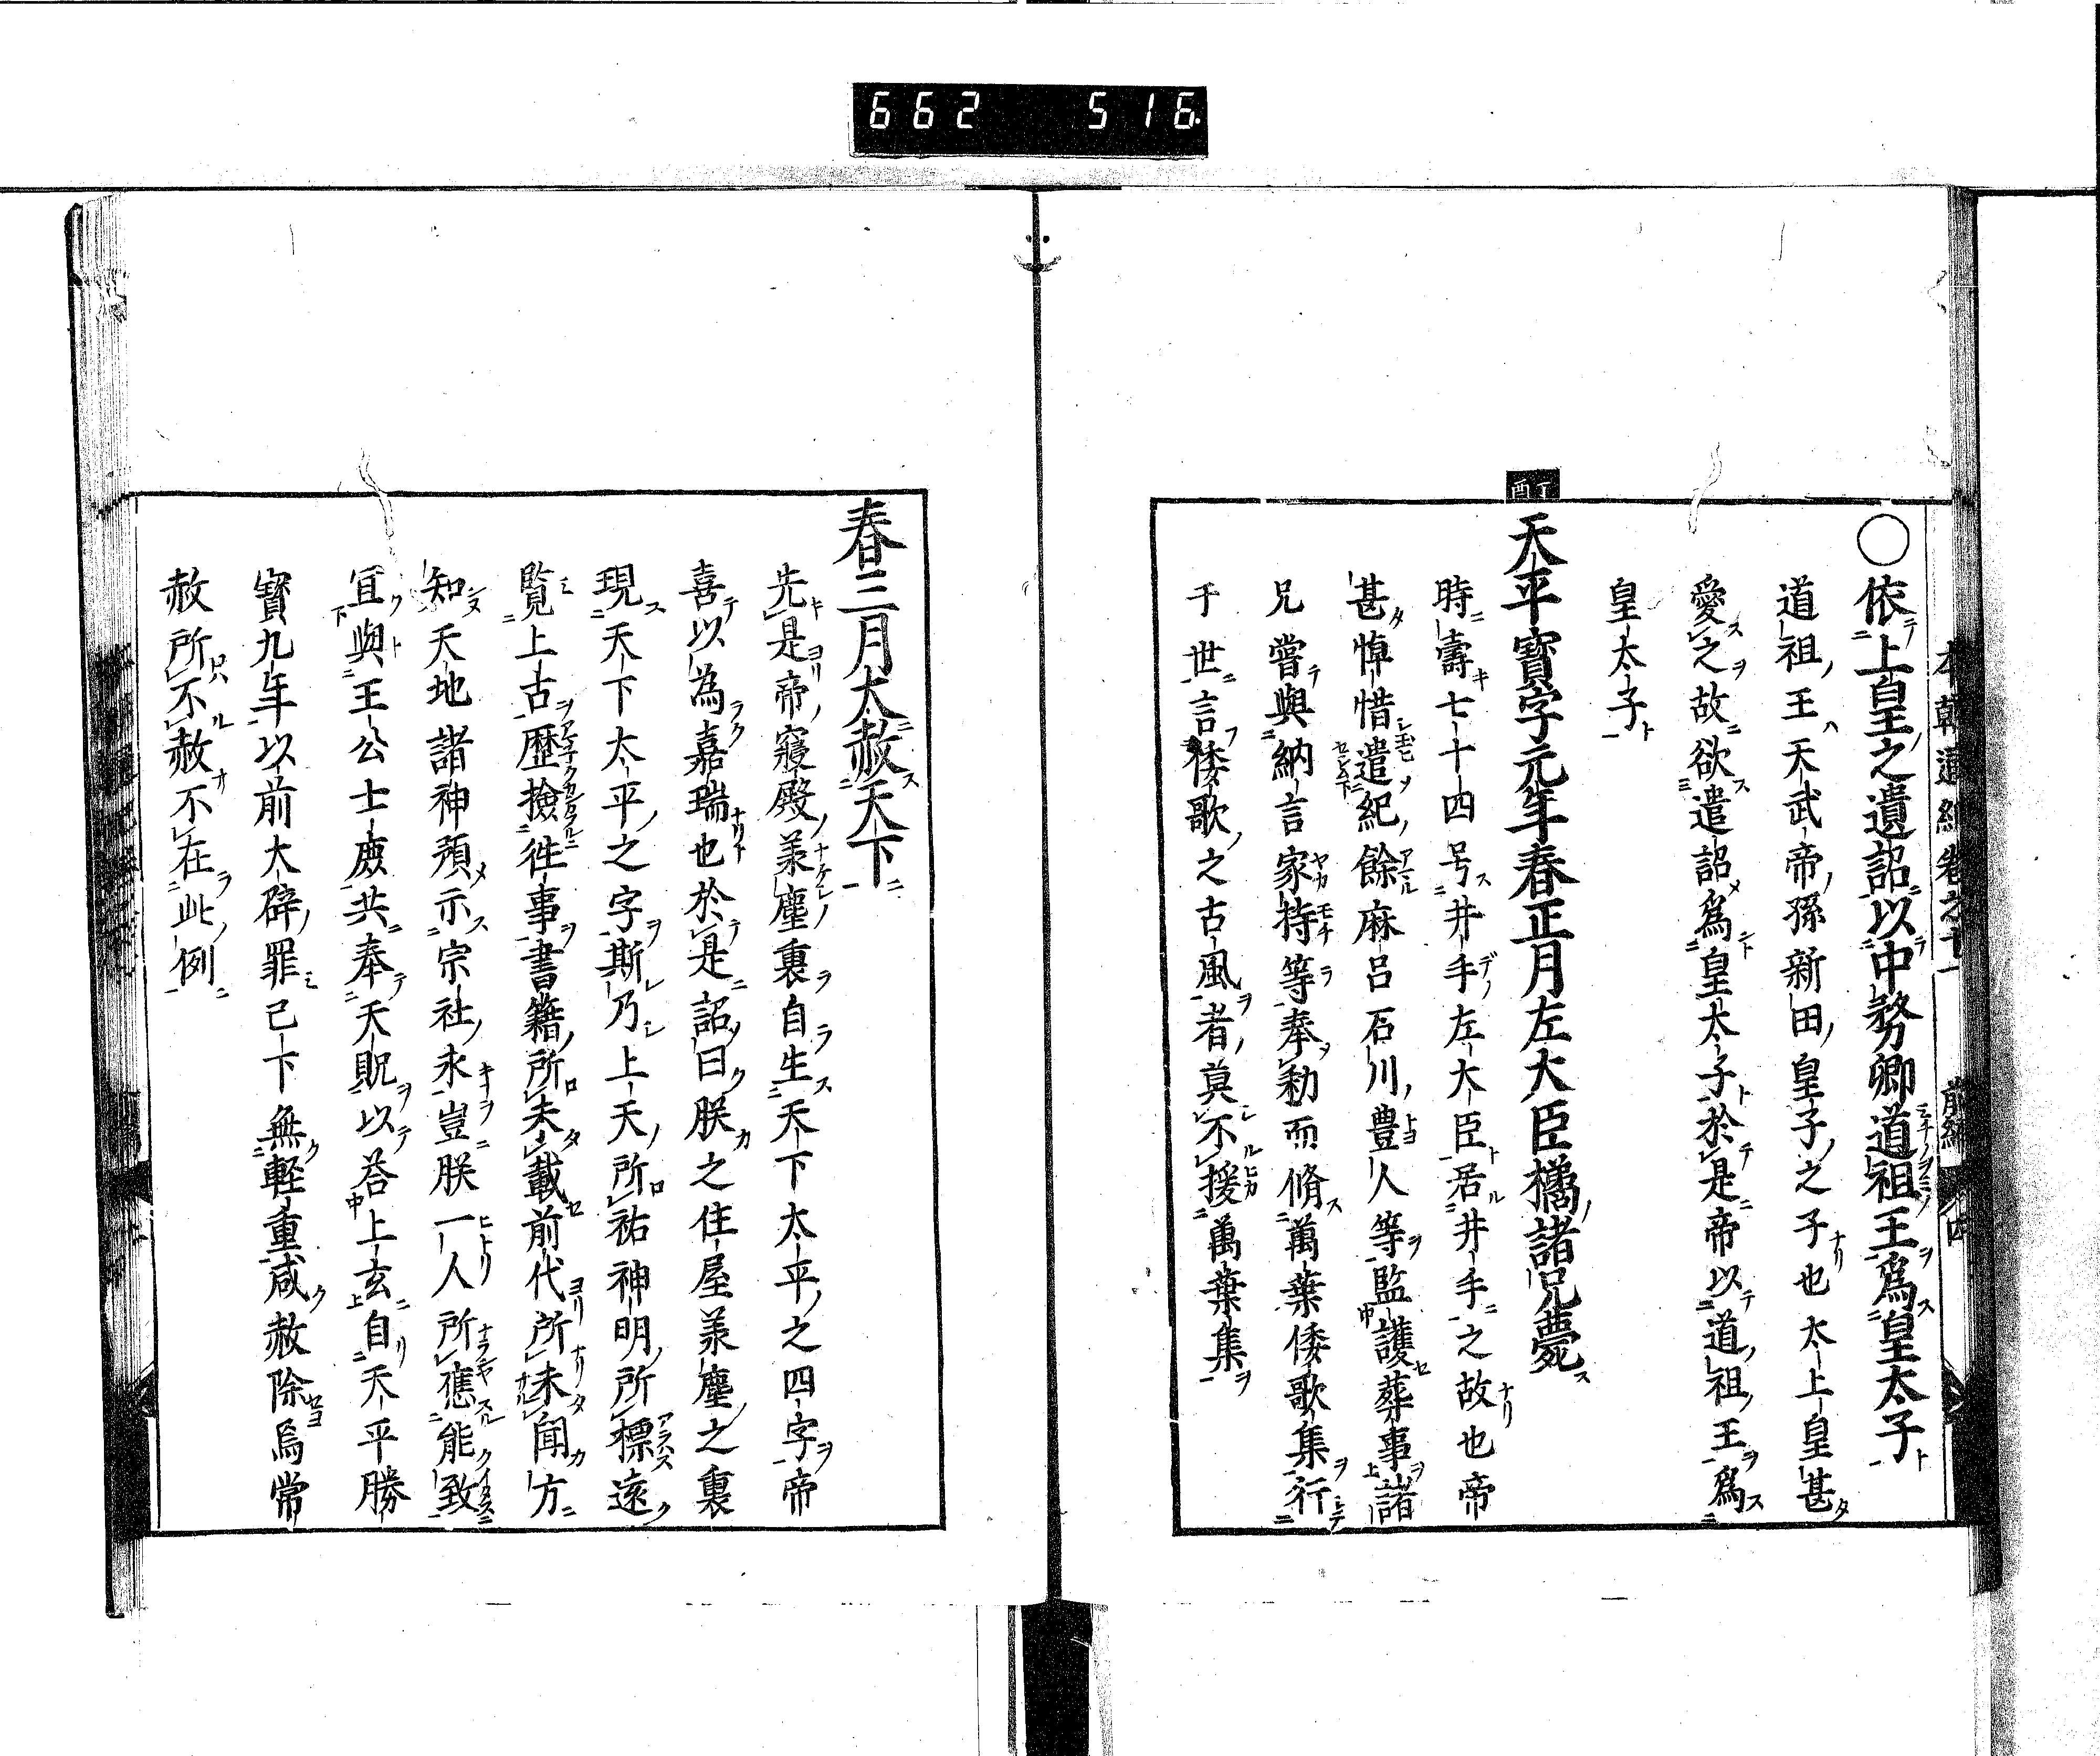 662 516
本朝通紀卷之十一 前編 四
○依上皇之遺詔以中務卿道祖王爲皇太子
道祖王天武帝孫新田皇子之子也太上皇甚
愛之故欲遣詔爲皇太子於是帝以道祖王爲
皇太子
丁酉
天平寶字元年春正月左大臣橘諸兄薨
時壽七十四号井手左大臣居井手之故也帝
甚悼惜遣紀餘麻呂石川豊人等監護葬事諸
兄嘗與納言家持等奉勅而脩萬葉倭歌集行
于世言倭歌之古風者莫不援萬葉集
春三月大赦天下
先是帝寢殿羕塵裏自生天下太平之四字帝
喜以為嘉瑞也於是詔曰朕之住屋羕塵之裏
現天下太平之字斯乃上天所祐神明所標遠
覧上古歴撿徃事書籍所未載前代所未聞方
知天地諸神預示宗社永豈朕一人所應能致
宜與王公士庶共奉天貺以荅上玄自天平勝
寳九年以前大辟罪已下無軽重咸赦除焉常
赦所不赦不在此例